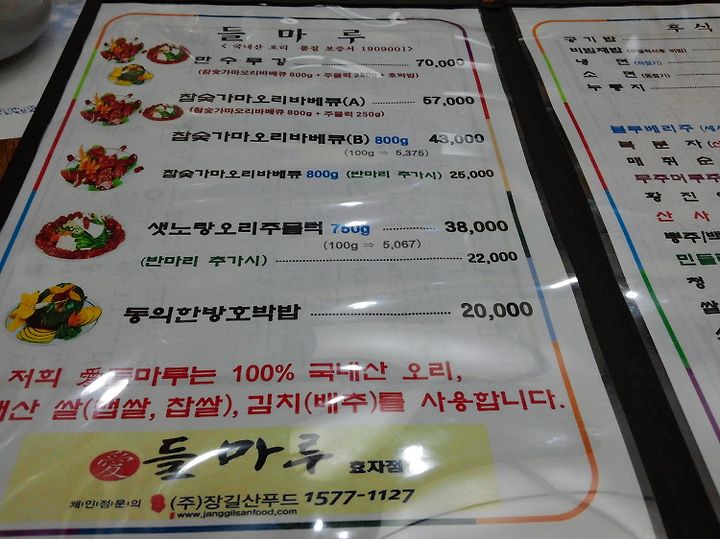 들마루
< 국내산 오리 품질 보증서 1909001>
만수무강 70,000
(참숯가마오리바베큐 800g + 주물럭 250g + 호박밥)
참숯가마오리바베큐(A) 57,000
(참숯가마오리바베큐 800g + 주물럭 250g)
참숯가마오리바베큐(B) 800g 43,000
(100g ⇒ 5,375)
참숯가마오리바베큐 800g (반마리 추가시) 25,000
샛노랑오리주물럭 750g 38,000
(100g ⇒ 5,067)
(반마리 추가시) 22,000
동의한방호박밥 20,000
저희 愛들마루는 100% 국내산 오리,
쌀(맵쌀, 찹쌀), 김치(배추)를 사용합니다.
愛 들마루 효자점
체인점문의 (주)장길산푸드 1577-1127
www.janggilsanfood.com
후식
공기밥
비빔제밥
냉면
소면
누룽지
블루베리주
복분자
매취순
무주머루주
황진
산사
민들
쌀